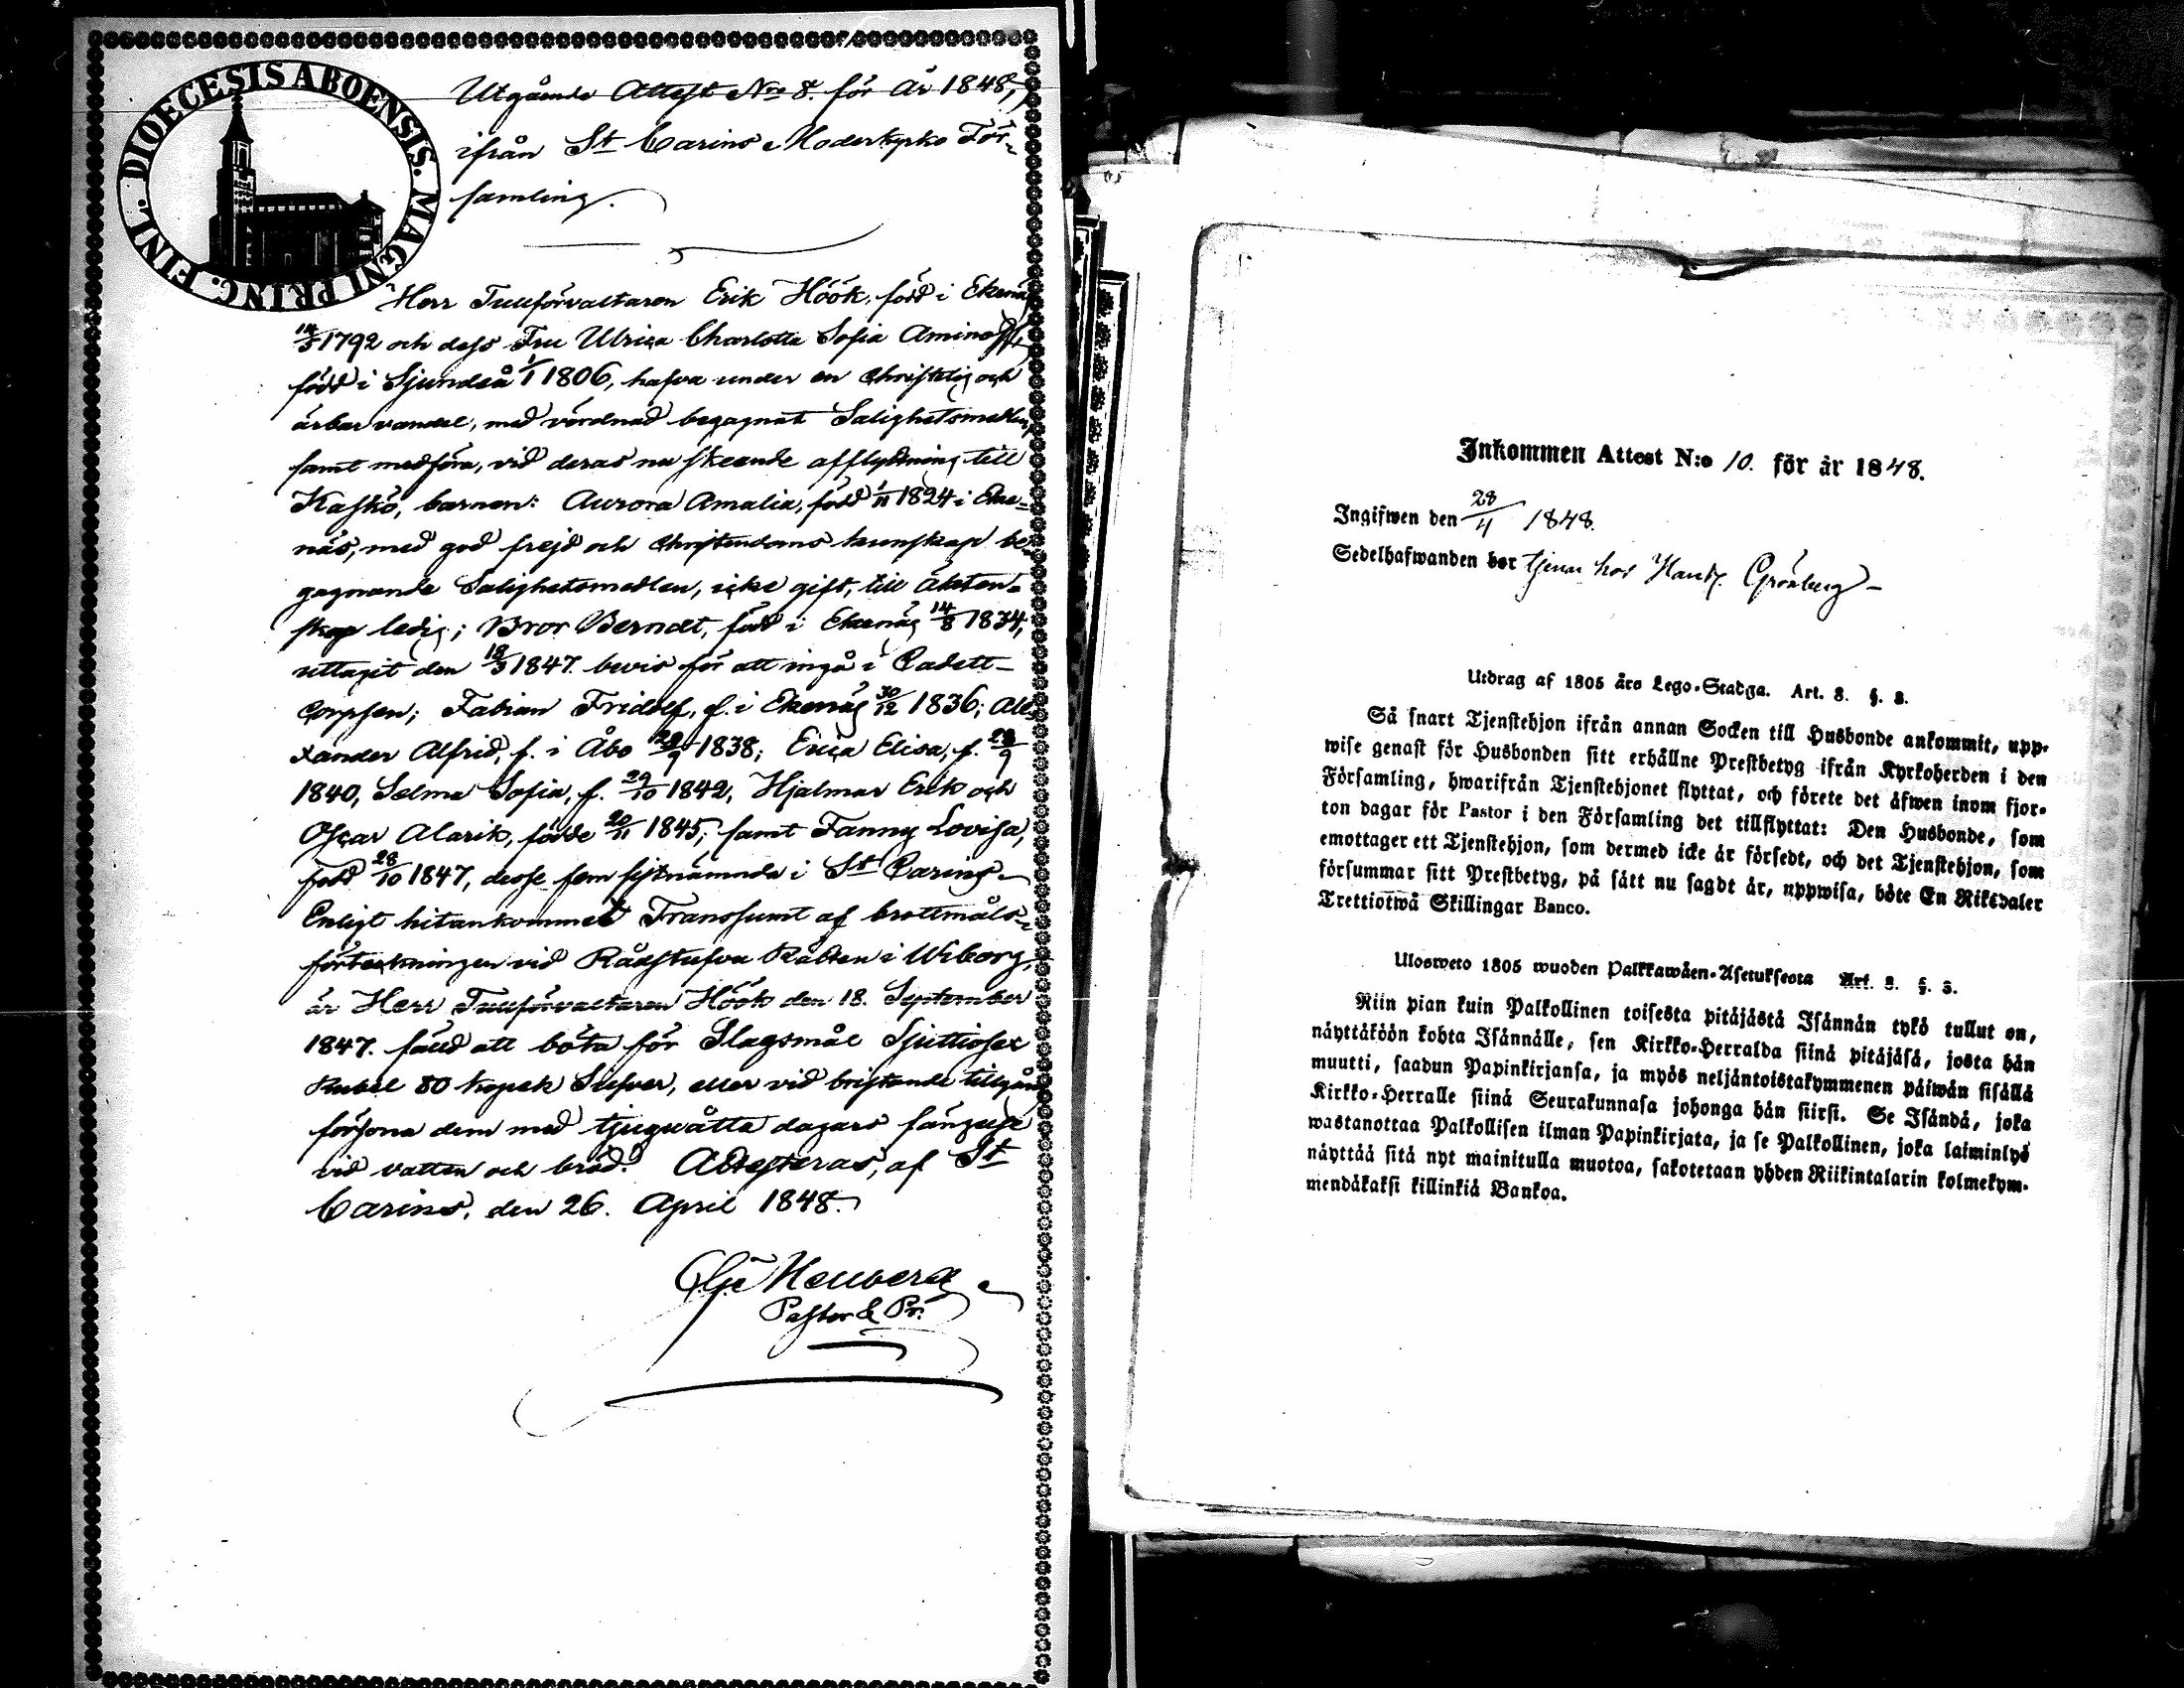 DIOECESIS ABOENSIS. MAGNI PRINC. FINL.
Utgående Attest Nro 8. för år 1848,
ifrån St Carins Moderkyrko För-
samling.
Herr Tullförvaltaren Erik Höök, född i Ekenäs
14/3 1792 och dess Fru Ulrica Charlotta Sofia Aminoff,
född i Sjundeå 1/1 1806, hafva under en Christelig och
ärbar vandel, med vördnad begagnat Salighetsmedlen,
samt medföra, vid deras nu skeende afflyttning till
Kaskö, barnen: Aurora Amalia, född 1/11 1824 i Eke-
näs, med god frejd och Christendoms kunskap be-
gagnande Salighetsmedlen, icke gift, till äkten-
skap ledig; Bror Berndt, född i Ekenäs 14/8 1834,
uttagit den 18/3 1847. bevis för att ingå i Cadett-
Corpsen; Fabian Fridolf, f. i Ekenäs 30/12 1836; Alex-
xander Alfrid, f. i Åbo 1838; Erica Elisa, f. 28/9
1840, Selma Sofia, f. 29/10 1842, Hjalmar Erik och
Oscar Alarik, födde 20/11 1845; samt Fanny Lovisa,
född 28/10 1847, desse fem sistnämnda i St Carins.
Enligt hitankommet Transsumt af brottmåls-
förteckningen vid Rådstufvu Rätten i Wiborg,
är Herr Tullförvaltaren Höök den 18. September
1847. fälld att böta för Slagsmål Sjuttiosex
Rubel 80 kopek Silfver, eller vid bristande tillgång
försona dem med tjuguåtta dagars fängelse
vid vatten och bröd. Attesteras, af St
Carins, den 26. April 1848.
Pastor & Pr.
Inkommen Attest N:o 10. för år 1848.
Ingifwen den 28/4 1848.
Sedelhafwanden bor tjenar hos Handl. Grönberg
Utdrag af 1805 års Lego-Stadga. Art. 8. §. 3.
Så snart Tjenstehjon ifrån annan Socken till Husbonde ankommit, upp-
wise genast för Husbonden sitt erhållne Prestbetyg ifrån Kyrkoherden i den
Församling, hwarifrån Tjenstehjonet flyttat, och förete det äfwen inom fjor-
ton dagar för Pastor i den Församling det tillflyttat: Den Husbonde, som
emottager ett Tjenstehjon, som dermed icke är försedt, och det Tjenstehjon, som
försummar sitt Prestbetyg, på sätt nu sagdt är, uppwisa, böte En Riksdaler
Trettiotwå Skillingar Banco.
Ulosweto 1805 wuoden Palkkawäen-Asetuksesta Art. 8. §. 3.
Niin pian kuin Palkollinen toisesta pitäjästä Isännän tykö tullut on,
näyttäköön kohta Isännälle, sen Kirkko-Herralda siinä pitäjäsä, josta hän
muutti, saadun Papinkirjansa, ja myös neljäntoistakymmenen päiwän sisällä
Kirkko-Herralle siinä Seurakunnasa johonga hän siirsi. Se Isändä, joka
wastanottaa Palkollisen ilman Papinkirjata, ja se Palkollinen, joka laiminlyö
näyttää sitä nyt mainitulla muotoa, sakotetaan yhden Riikintalarin kolmekym-
mendäkaksi killinkiä Bankoa.